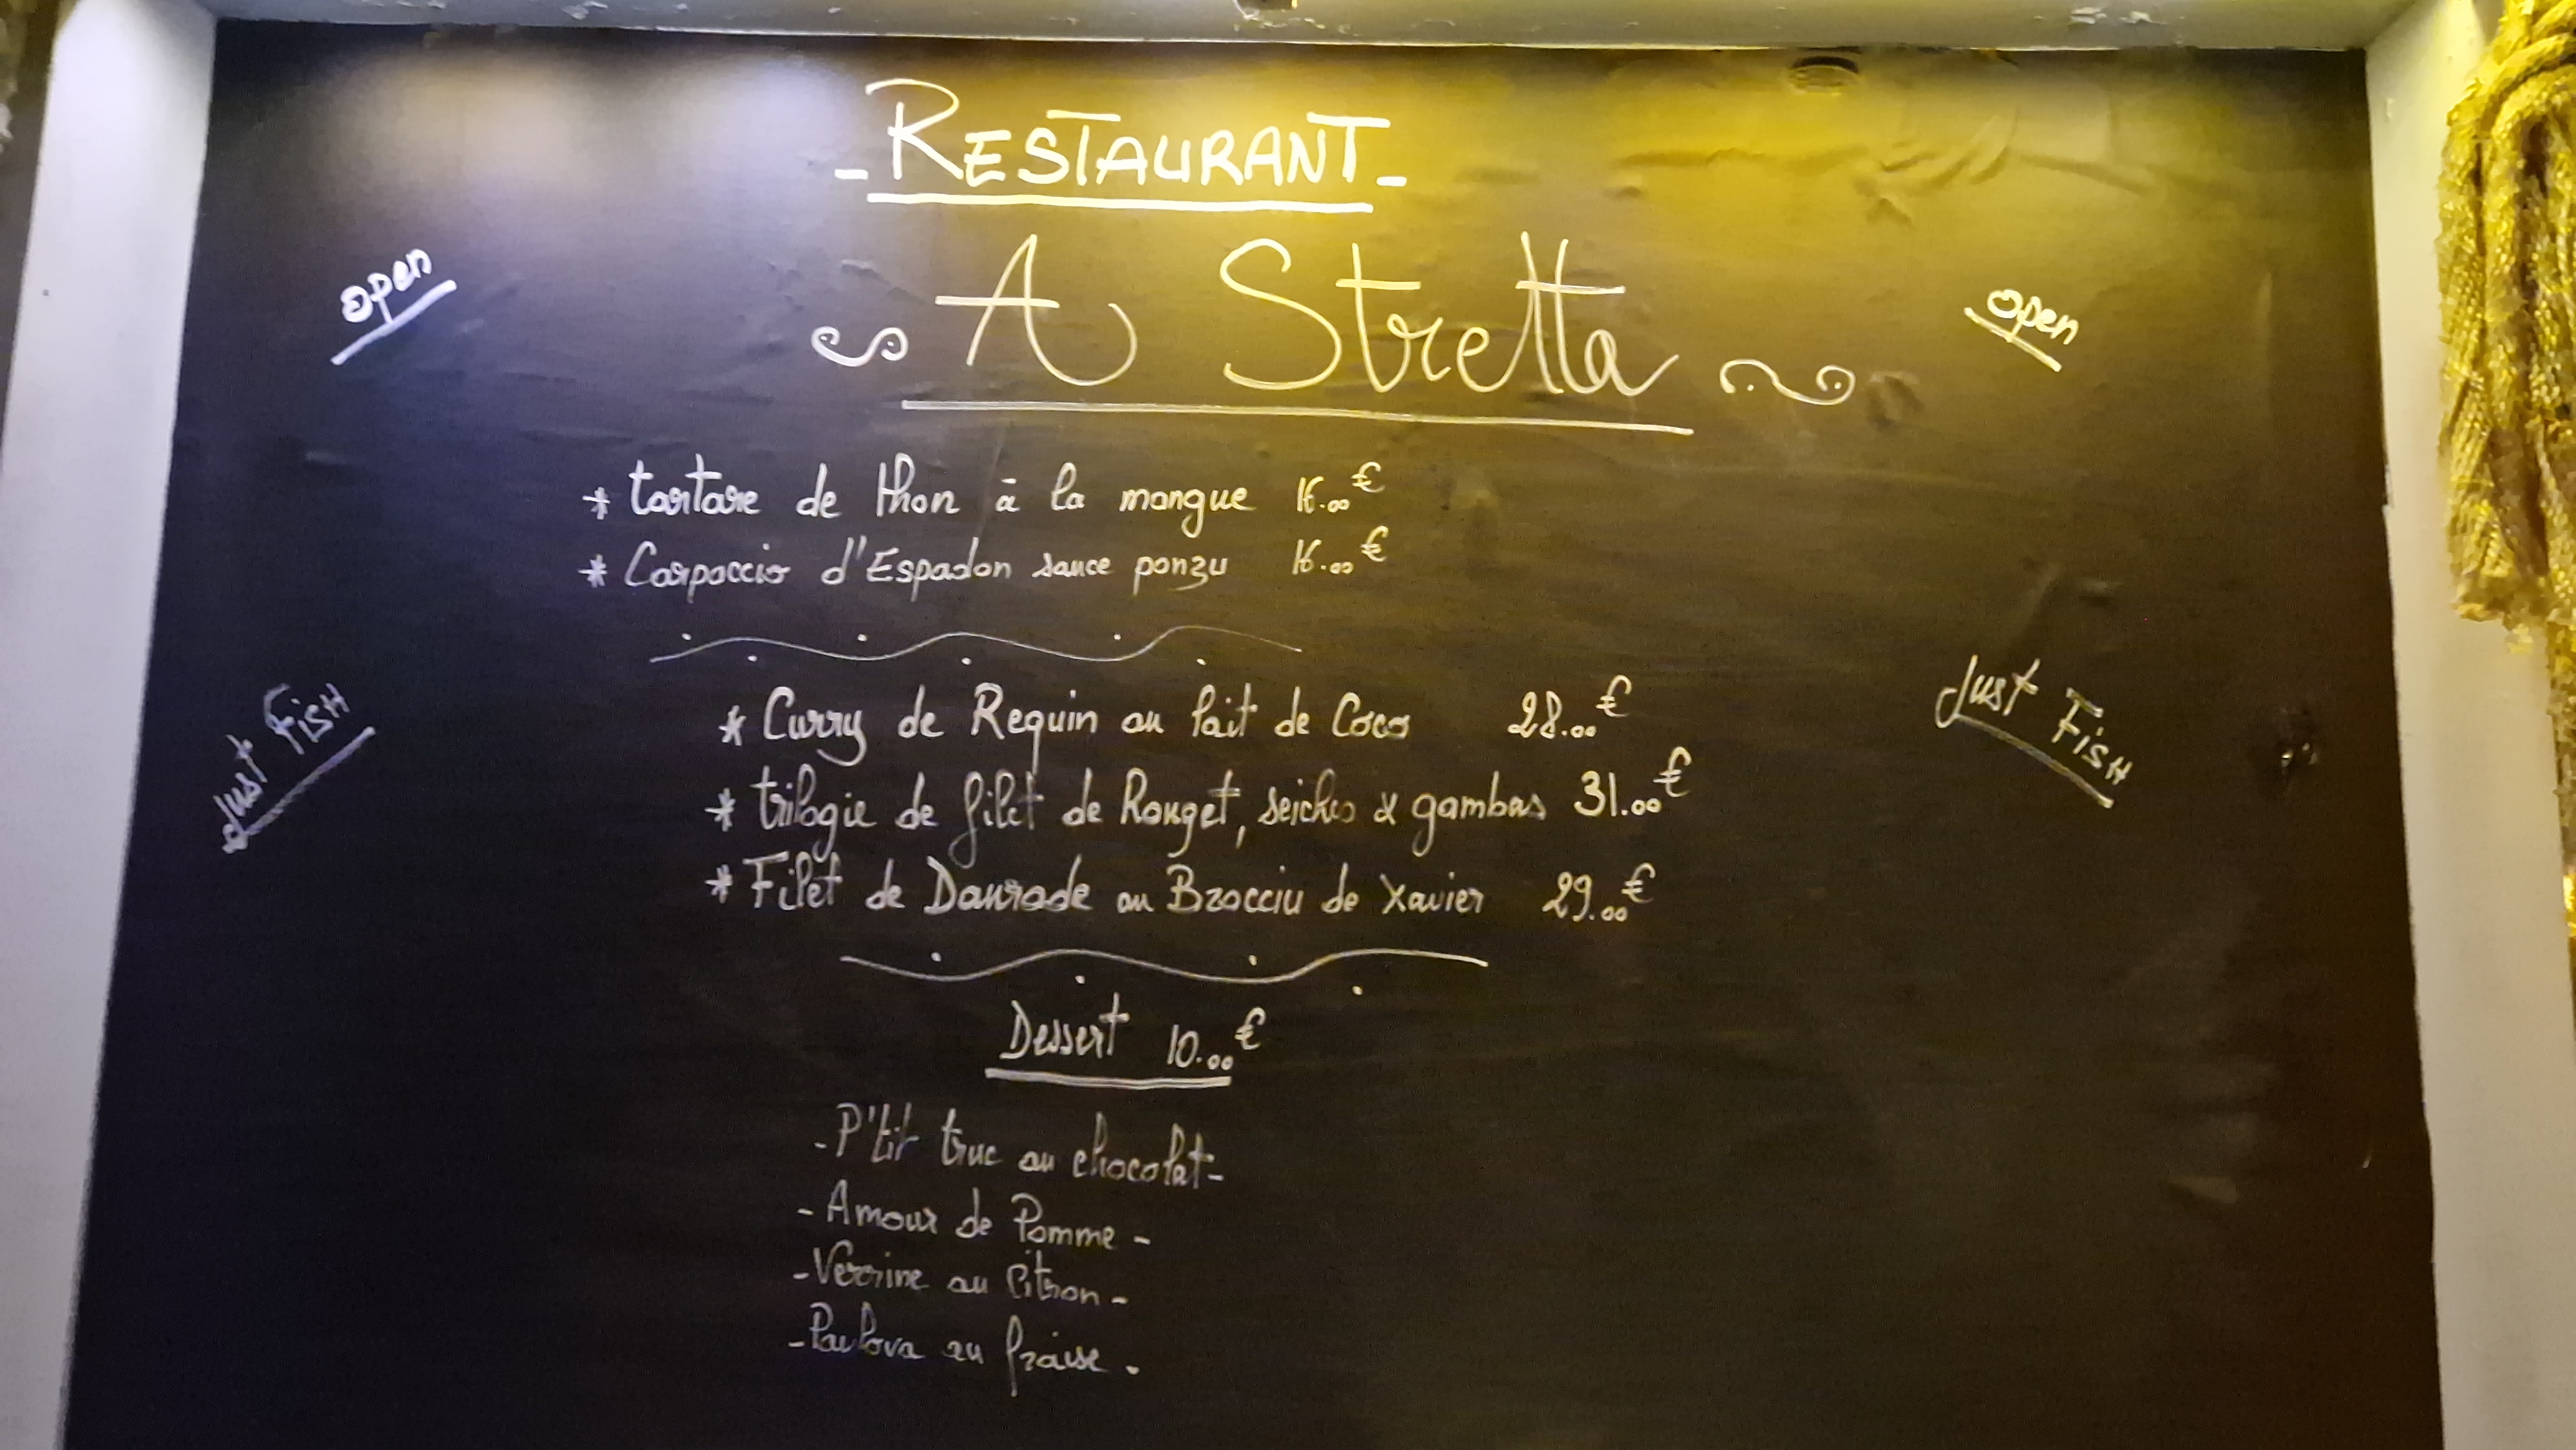 - RESTAURANT -
open
A Stretta
open
* tartare de thon à la mangue 16.00€
* Carpaccio d'Espadon sauce ponzu 16.00€
Just FisH
Just FisH
* Curry de Requin au lait de Coco 28.00€
* trilogie de filet de Rouget, seiches & gambas 31.00€
* Filet de Daurade au Brocciu de Xavier 29.00€
Dessert 10.00€
- P'tit truc au chocolat -
- Amour de Pomme -
- Verrine au Citron -
- Pavlova au fraise -